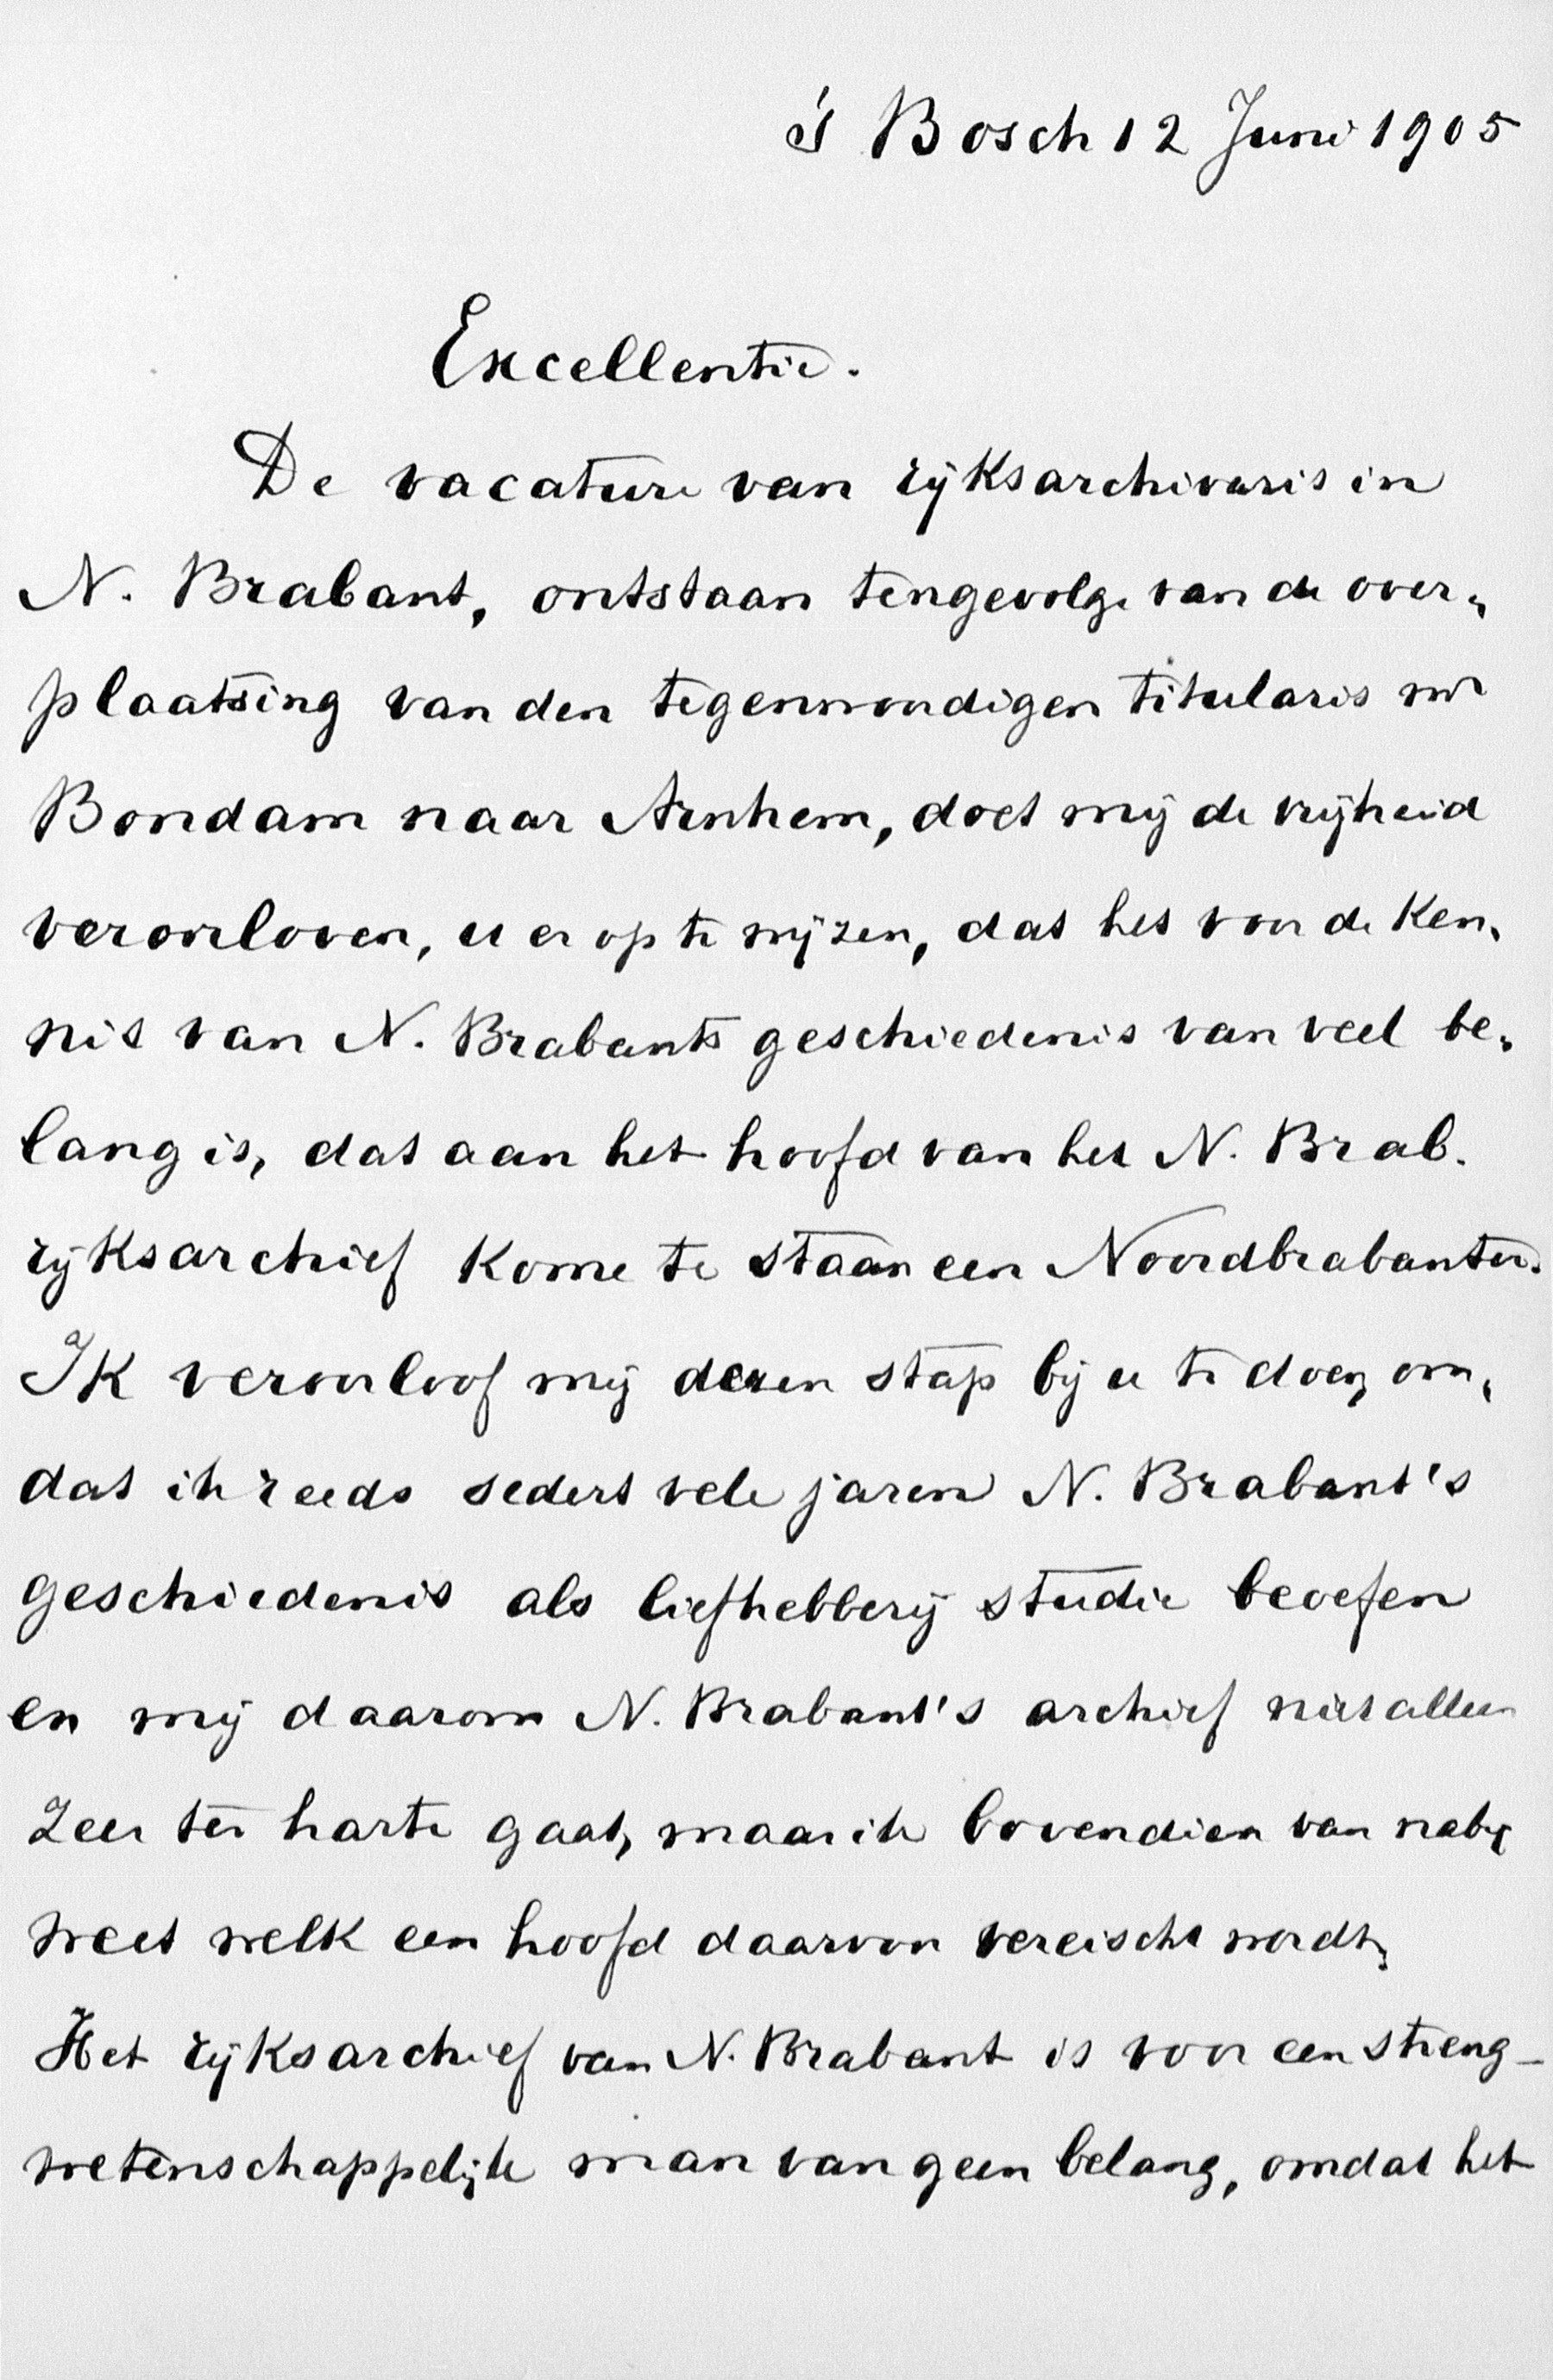 's Bosch 12 Juni 1905
Excellentie.
De vacature van rijksarchivaris in
N. Brabant, ontstaan tengevolge van de over„
plaatsing van den tegenwoordigen titularis mr
Bondam naar Arnhem, doet mij de vrijheid
veroorloven, u er op te wijzen, dat het voor de ken„
nis van N. Brabants geschiedenis van veel be„
lang is, dat aan het hoofd van het N. Brab.
rijksarchief kome te staan een Noordbrabanter.
Ik veroorloof mij dezen stap bij u te doen, om„
dat ik reeds sedert vele jaren N. Brabant's
geschiedenis als liefhebberij studie beoefen
en mij daarom N. Brabant's archief niet alleen
zeer ter harte gaat, maar ik bovendien van nabij
weet welk een hoofd daarvoor vereischt wordt.
Het rijksarchief van N. Brabant is voor een streng-
wetenschappelijk man van geen belang, omdat het